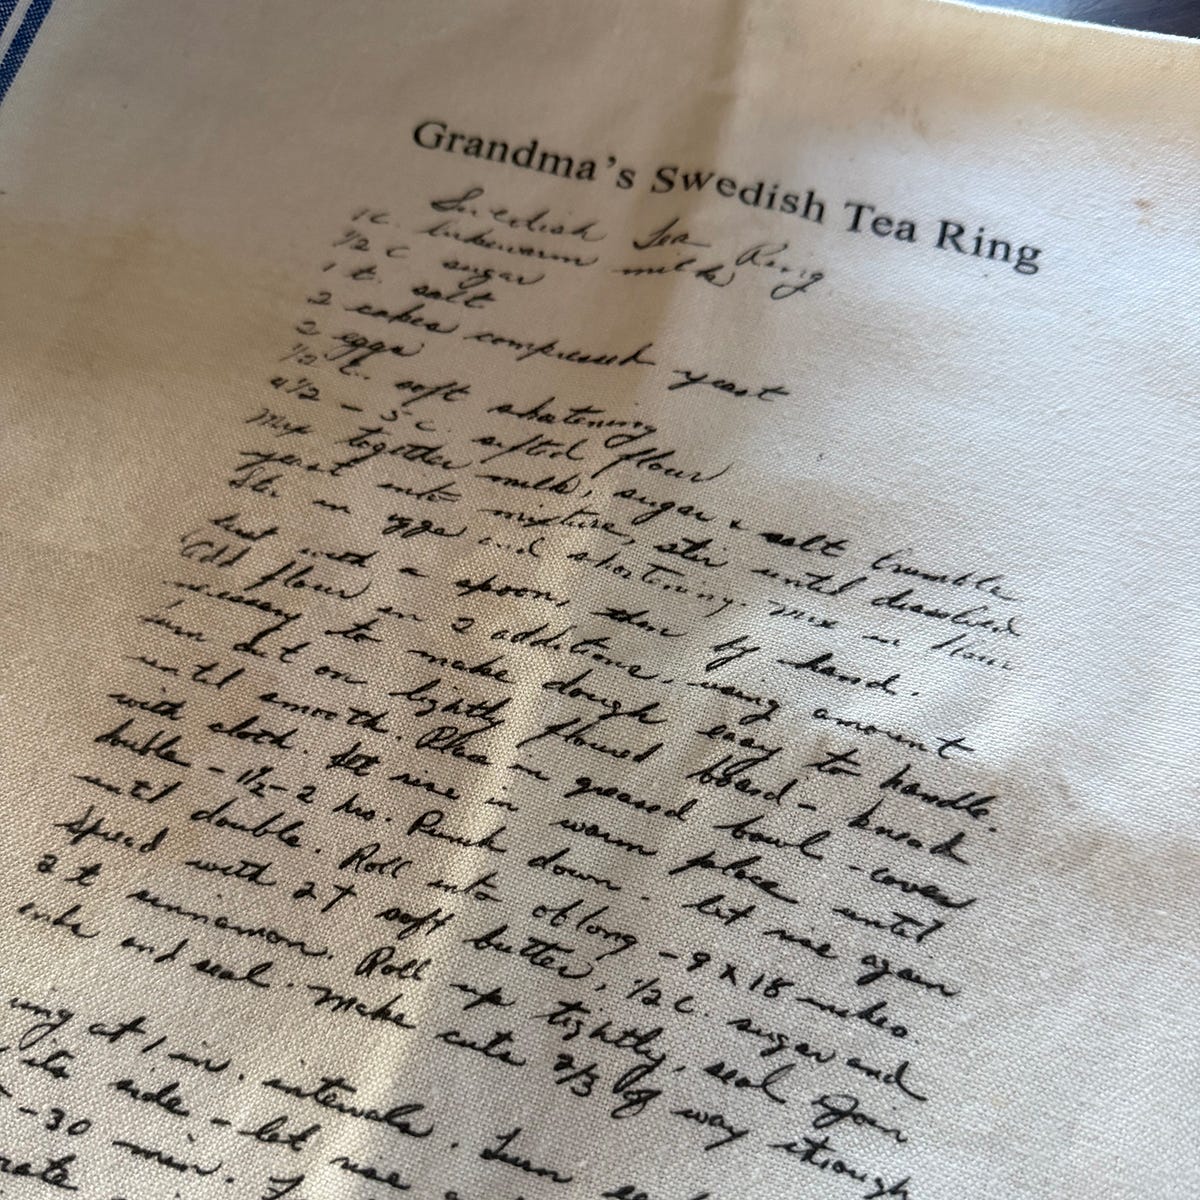 Grandma's Swedish Tea Ring
Swedish Tea Ring
1 c. lukewarm milk
1/2 c sugar
1 t. salt
2 cakes compressed yeast
2 eggs
1/2 c. soft shortening
4 1/2 - 5 c. sifted flour
Mix together milk, sugar & salt Crumble
yeast into mixture, stir until dissolved
Stir in eggs and shortening. Mix in flour
first with a spoon, then by hand.
Add flour in 2 additions, using amount
necessary to make dough easy to handle.
Turn out on lightly floured board - knead
until smooth. Place in greased bowl - cover
with cloth. Let rise in warm place until
double - 1 1/2 - 2 hrs. Punch down. Let rise again
until double. Roll into oblong - 9 x 18 inches.
Spread with 2 T soft butter, 1/2 c. sugar and
2 t cinnamon. Roll up tightly, seal. Join
ends and seal. Make cuts 2/3 of way through
ring at 1 in. intervals. Turn
its side - let rise
- 30 min.